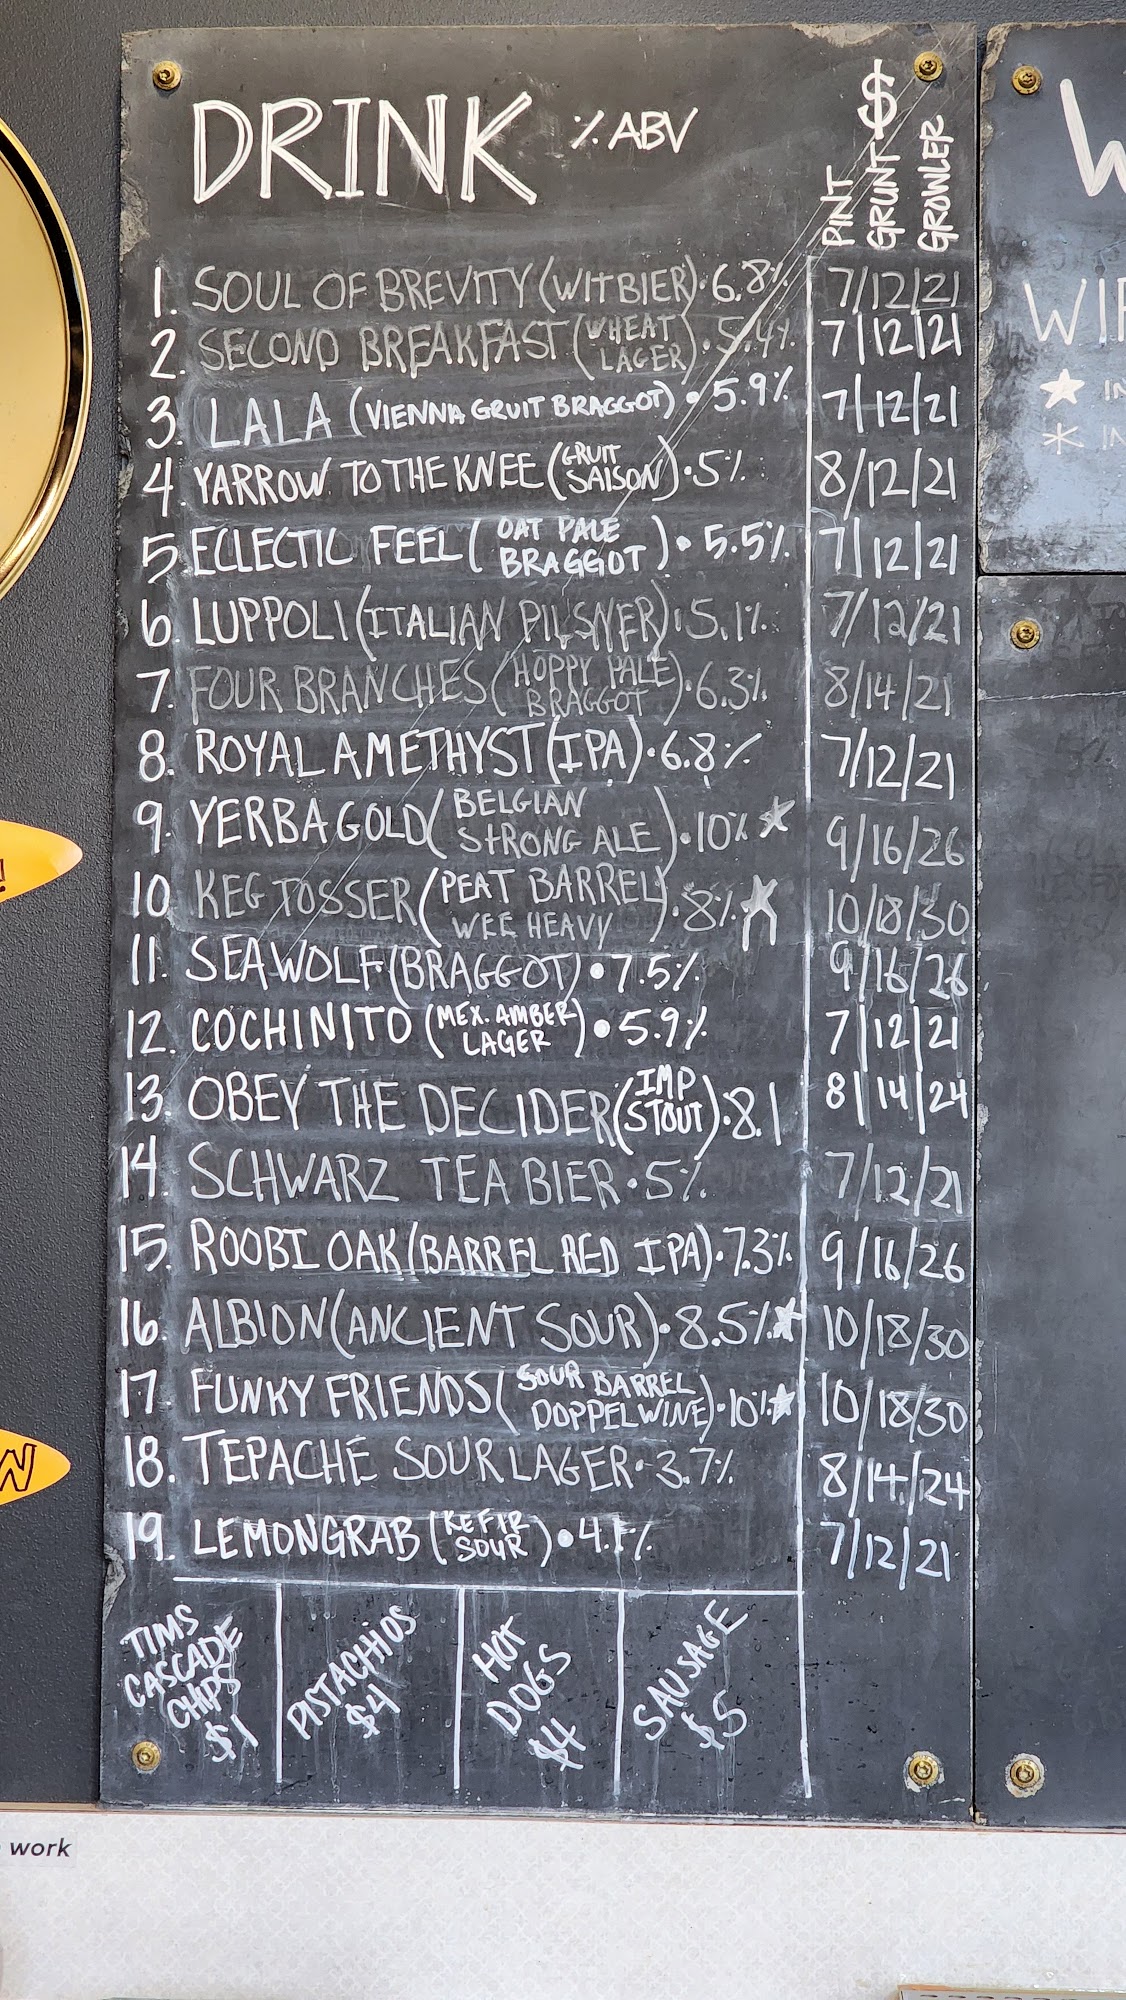 DRINK % ABV
$
PINT
GRUNT
GROWLER
1. SOUL OF BREVITY (WITBIER) • 6.8% 7/12/21
2. SECOND BREAKFAST (WHEAT LAGER) • 5.4% 7/12/21
3. LALA (VIENNA GRUIT BRAGGOT) • 5.9% 7/12/21
4. YARROW TO THE KNEE (GRUIT SAISON) • 5% 8/12/21
5. ECLECTIC FEEL (OAT PALE BRAGGOT) • 5.5% 7/12/21
6. LUPPOLI (ITALIAN PILSNER) • 5.1% 7/12/21
7. FOUR BRANCHES (HOPPY PALE BRAGGOT) • 6.3% 8/14/21
8. ROYAL AMETHYST (IPA) • 6.8% 7/12/21
9. YERBA GOLD (BELGIAN STRONG ALE) • 10% ★ 9/16/26
10. KEG TOSSER (PEAT BARREL WEE HEAVY) • 8% ★ 10/18/30
11. SEAWOLF (BRAGGOT) • 7.5% 9/16/26
12. COCHINITO (MEX. AMBER LAGER) • 5.9% 7/12/21
13. OBEY THE DECIDER (IMP STOUT) • 8.1 8/14/24
14. SCHWARZ TEA BIER • 5% 7/12/21
15. ROOBI OAK (BARREL RED IPA) • 7.3% 9/16/26
16. ALBION (ANCIENT SOUR) • 8.5% ★ 10/18/30
17. FUNKY FRIENDS (SOUR BARREL DOPPELWINE) • 10% ★ 10/18/30
18. TEPACHE SOUR LAGER • 3.7% 8/14/24
19. LEMONGRAB (KEFIR SOUR) • 4.1% 7/12/21
TIMS
CASCADE
CHIPS
$1
PISTACHIOS
$4
HOT
DOGS
$4
SAUSAGE
$5
work